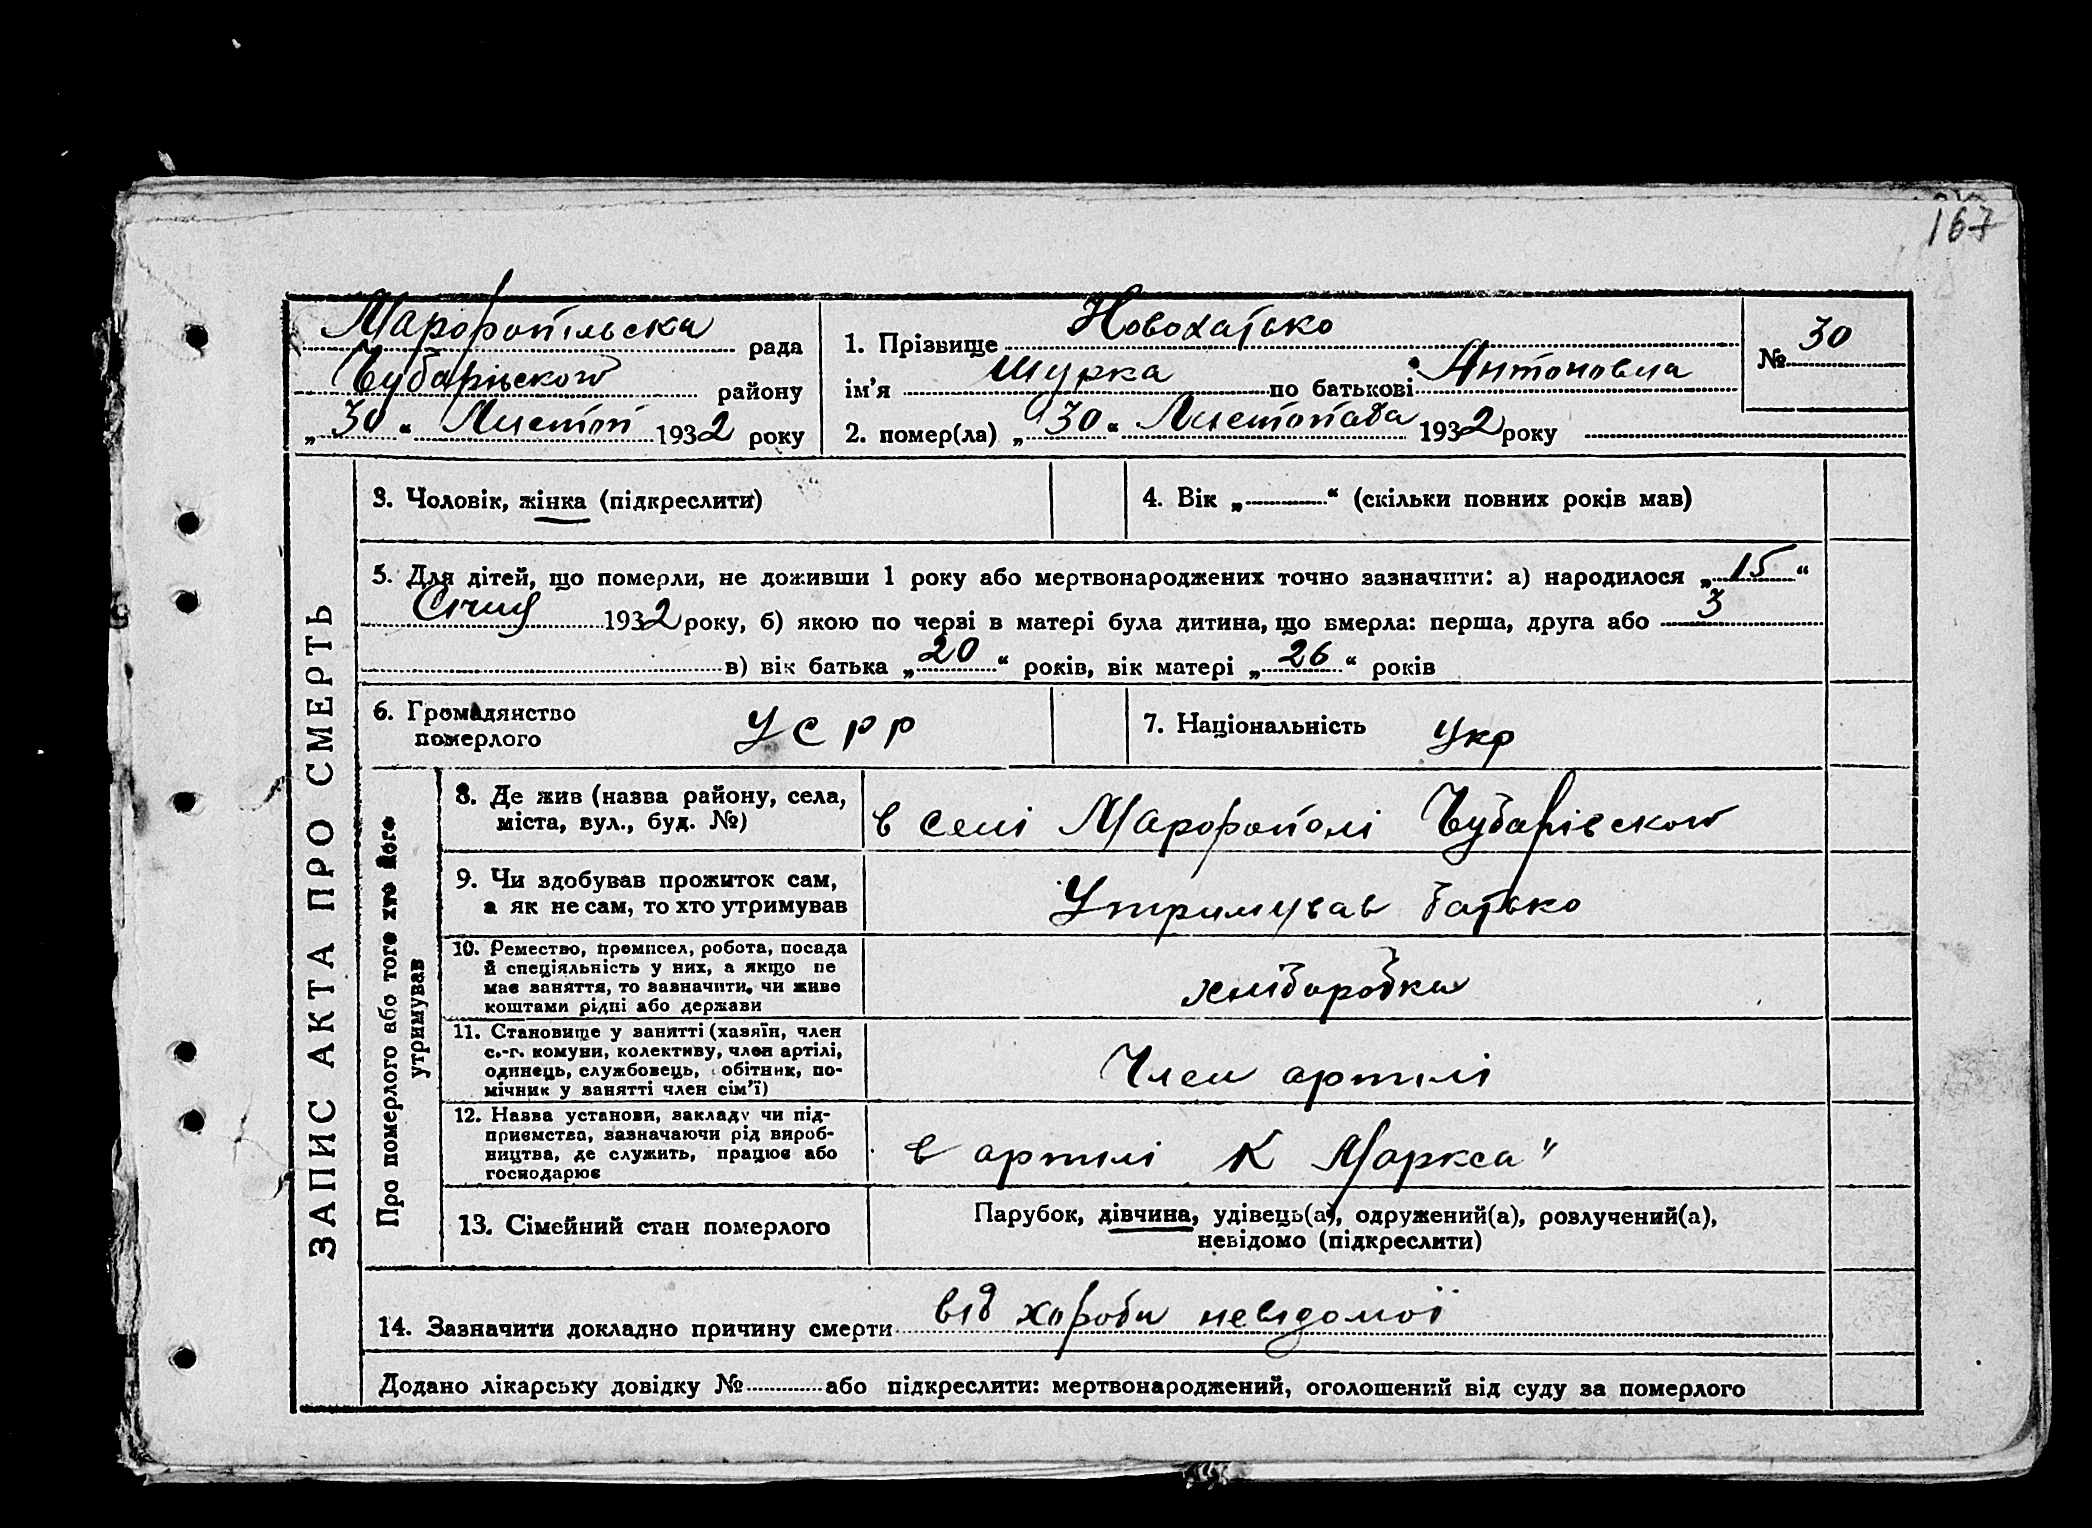 167
Марфопільська рада
Чубарівського району
„30“ Листоп 1932 року
1. Прізвище Новохатько
ім’я Шурка по батькові Антоновна
2. помер(ла) „30“ Листопада 1932 року
№ 30
ЗАПИС АКТА ПРО СМЕРТЬ
3. Чоловік, жінка (підкреслити)
4. Вік „ “ (скільки повних років мав)
5. Для дітей, що померли, не доживши 1 року або мертвонароджених точно зазначити: а) народилося „15“
Січня 1932 року, б) якою по черзі в матері була дитина, що вмерла: перша, друга або 3
в) вік батька „20“ років, вік матері „26“ років
6. Громадянство
померлого
УСРР
7. Національність Укр
Про померлого або того хто його
утримував
8. Де жив (назва району, села,
міста, вул., буд. №)
в селі Марфополі Чубарівского
9. Чи здобував прожиток сам,
а як не сам, то хто утримував
Утримував батько
10. Ремество, промисел, робота, посада
й спеціяльність у них, а якщо не
має заняття, то зазначити, чи живе
коштами рідні або держави
хліборобка
11. Становище у занятті (хазяїн, член
с.-г. комуни, колективу, член артілі,
одинець, службовець, обітник, по-
мічник у занятті член сім’ї)
Член артілі
12. Назва установи, закладу чи під-
приємства, зазначаючи рід вироб-
ництва, де служить, працює або
господарює
в артілі К Маркса"
13. Сімейний стан померлого
Парубок, дівчина, удівець(а), одружений(а), розлучений(а),
невідомо (підкреслити)
14. Зазначити докладно причину смерти від хороби невідомої
Додано лікарську довідку № або підкреслити: мертвонароджений, оголошений від суду за померлого